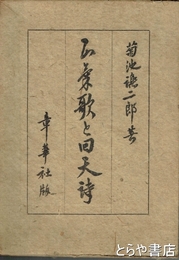 菊池謙二郎著
正氣歌と回天詩
章華社版
とらや書店